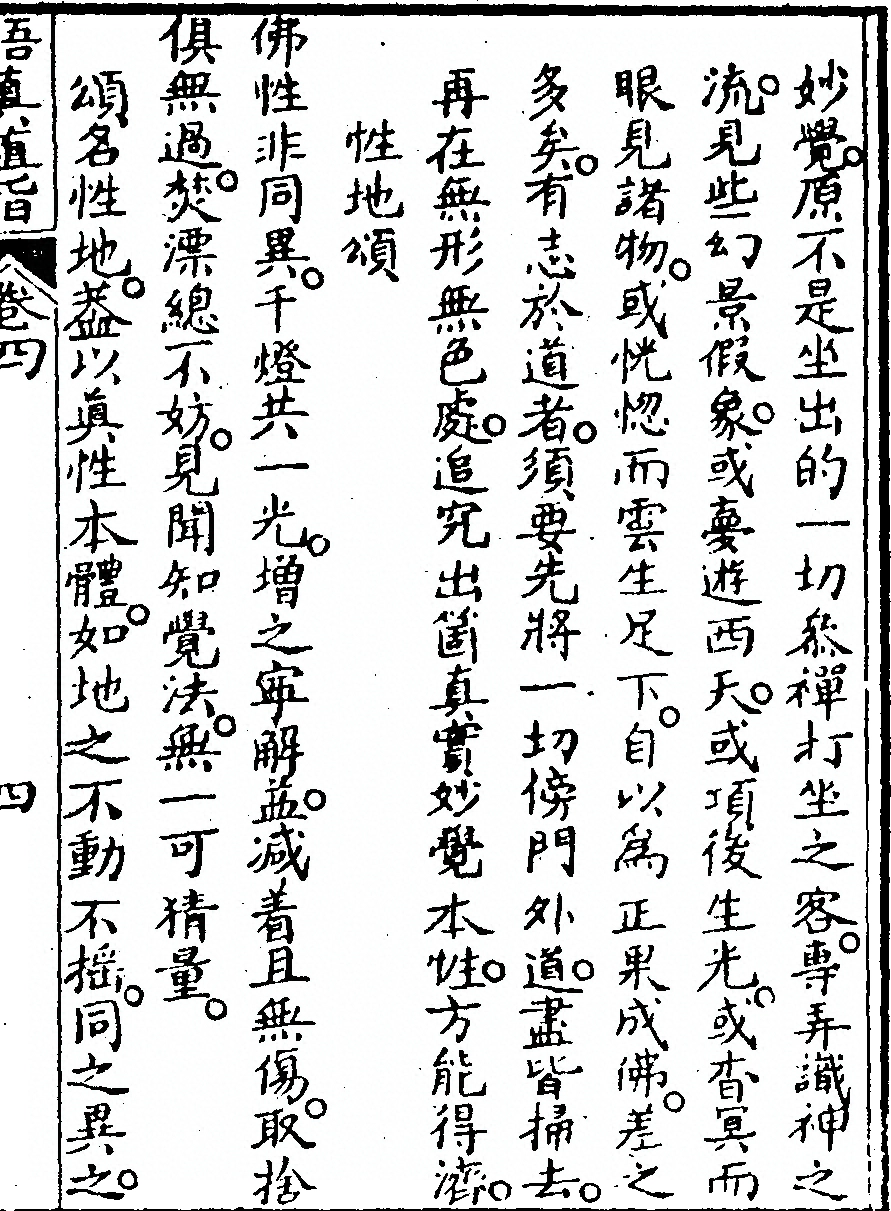 妙覺。原不是坐出的一切叅禪打坐之客。專弄識神之
流。見些幻景假象。或憂遊西天。或項後生光。或杳冥而
眼見諸物。或恍惚而雲生足下。自以爲正果成佛。差之
多矣。有志於道者。須要先將一切傍門外道。盡皆掃去。
再在無形無色處。追究出箇真實妙覺本性。方能得濟。
性地頌
佛性非同異。千燈共一光。增之寧解益。减着且無傷。取捨
俱無過。焚漂總不妨。見聞知覺法。無一可猜量。
頌名性地。葢以眞性本體。如地之不動不搖。同之異之。
悟真直旨 卷四 四